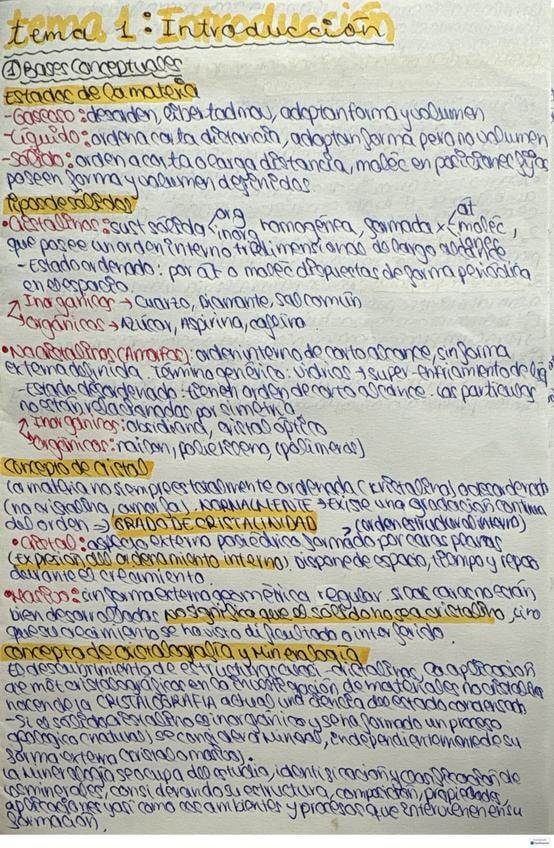 tema 1: Introducción
① Bases Conceptuales
Estados de la materia
-Gaseoso: desorden, libertad mov, adoptan forma y volumen
-Líquido: orden a corta distancia, adoptan forma pero no volumen
-Sólido: orden a corta o larga distancia, moléc en posiciones fijas
poseen forma y volumen definidos
Tipos de sólidos
•Cristalinos: sust sólida org inorg homogénea, formada x at moléc,
que posee un orden interno tridimensional de largo alcance
-Estado ordenado: por at o moléc dispuestas de forma periódica
en el espacio
Inorgánicos → cuarzo, diamante, sal común
orgánicos → Azúcar, aspirina, cafeína
•No cristalinos (Amorfos): orden interno de corto alcance, sin forma
externa definida. Término genérico: vidrios → super-enfriamiento de líq
-Estado desordenado: tienen orden de corto alcance. Las partículas
no están relacionadas por simetría
Inorgánicos: obsidiana, cristal óptico
orgánicos: nailon, poliestireno, (polímeros)
Concepto de cristal
La materia no siempre es totalmente ordenada (cristalina) o desordenada
(no cristalina, amorfa). NORMALMENTE → Existe una gradación continua
del orden → GRADO DE CRISTALINIDAD → (orden estructural interno)
•Cristal: aspecto externo poliédrico formado por caras planas
(expresión del ordenamiento interno). Dispone de espacio, tiempo y reposo
durante el crecimiento
•Masivo: sin forma externa geométrica regular. Si las caras no están
bien desarrolladas no significa que el sólido no sea cristalino, sino
que su crecimiento se ha visto dificultado o interferido.
Concepto de cristalografía y Mineralogía
El descubrimiento de estructuras cuasi-cristalinas, la aplicación
de mét cristalográficos en la investigación de materiales no cristalinos
hacen de la CRISTALOGRAFÍA actual una ciencia del estado condensado
-Si el sólido cristalino es inorgánico y se ha formado un proceso
geológico (natural) se considera Mineral, independientemente de su
forma externa (cristal o masivo).
La Mineralogía se ocupa del estudio, identificación y clasificación de
los minerales, considerando su estructura, composición, propiedades,
aplicaciones así como los ambientes y procesos que intervienen en su
formación.